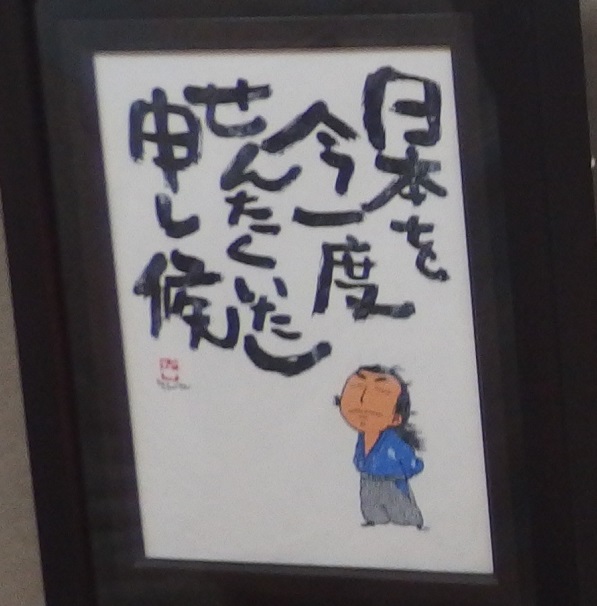 日本を
今一度
せんたくいたし
申し候